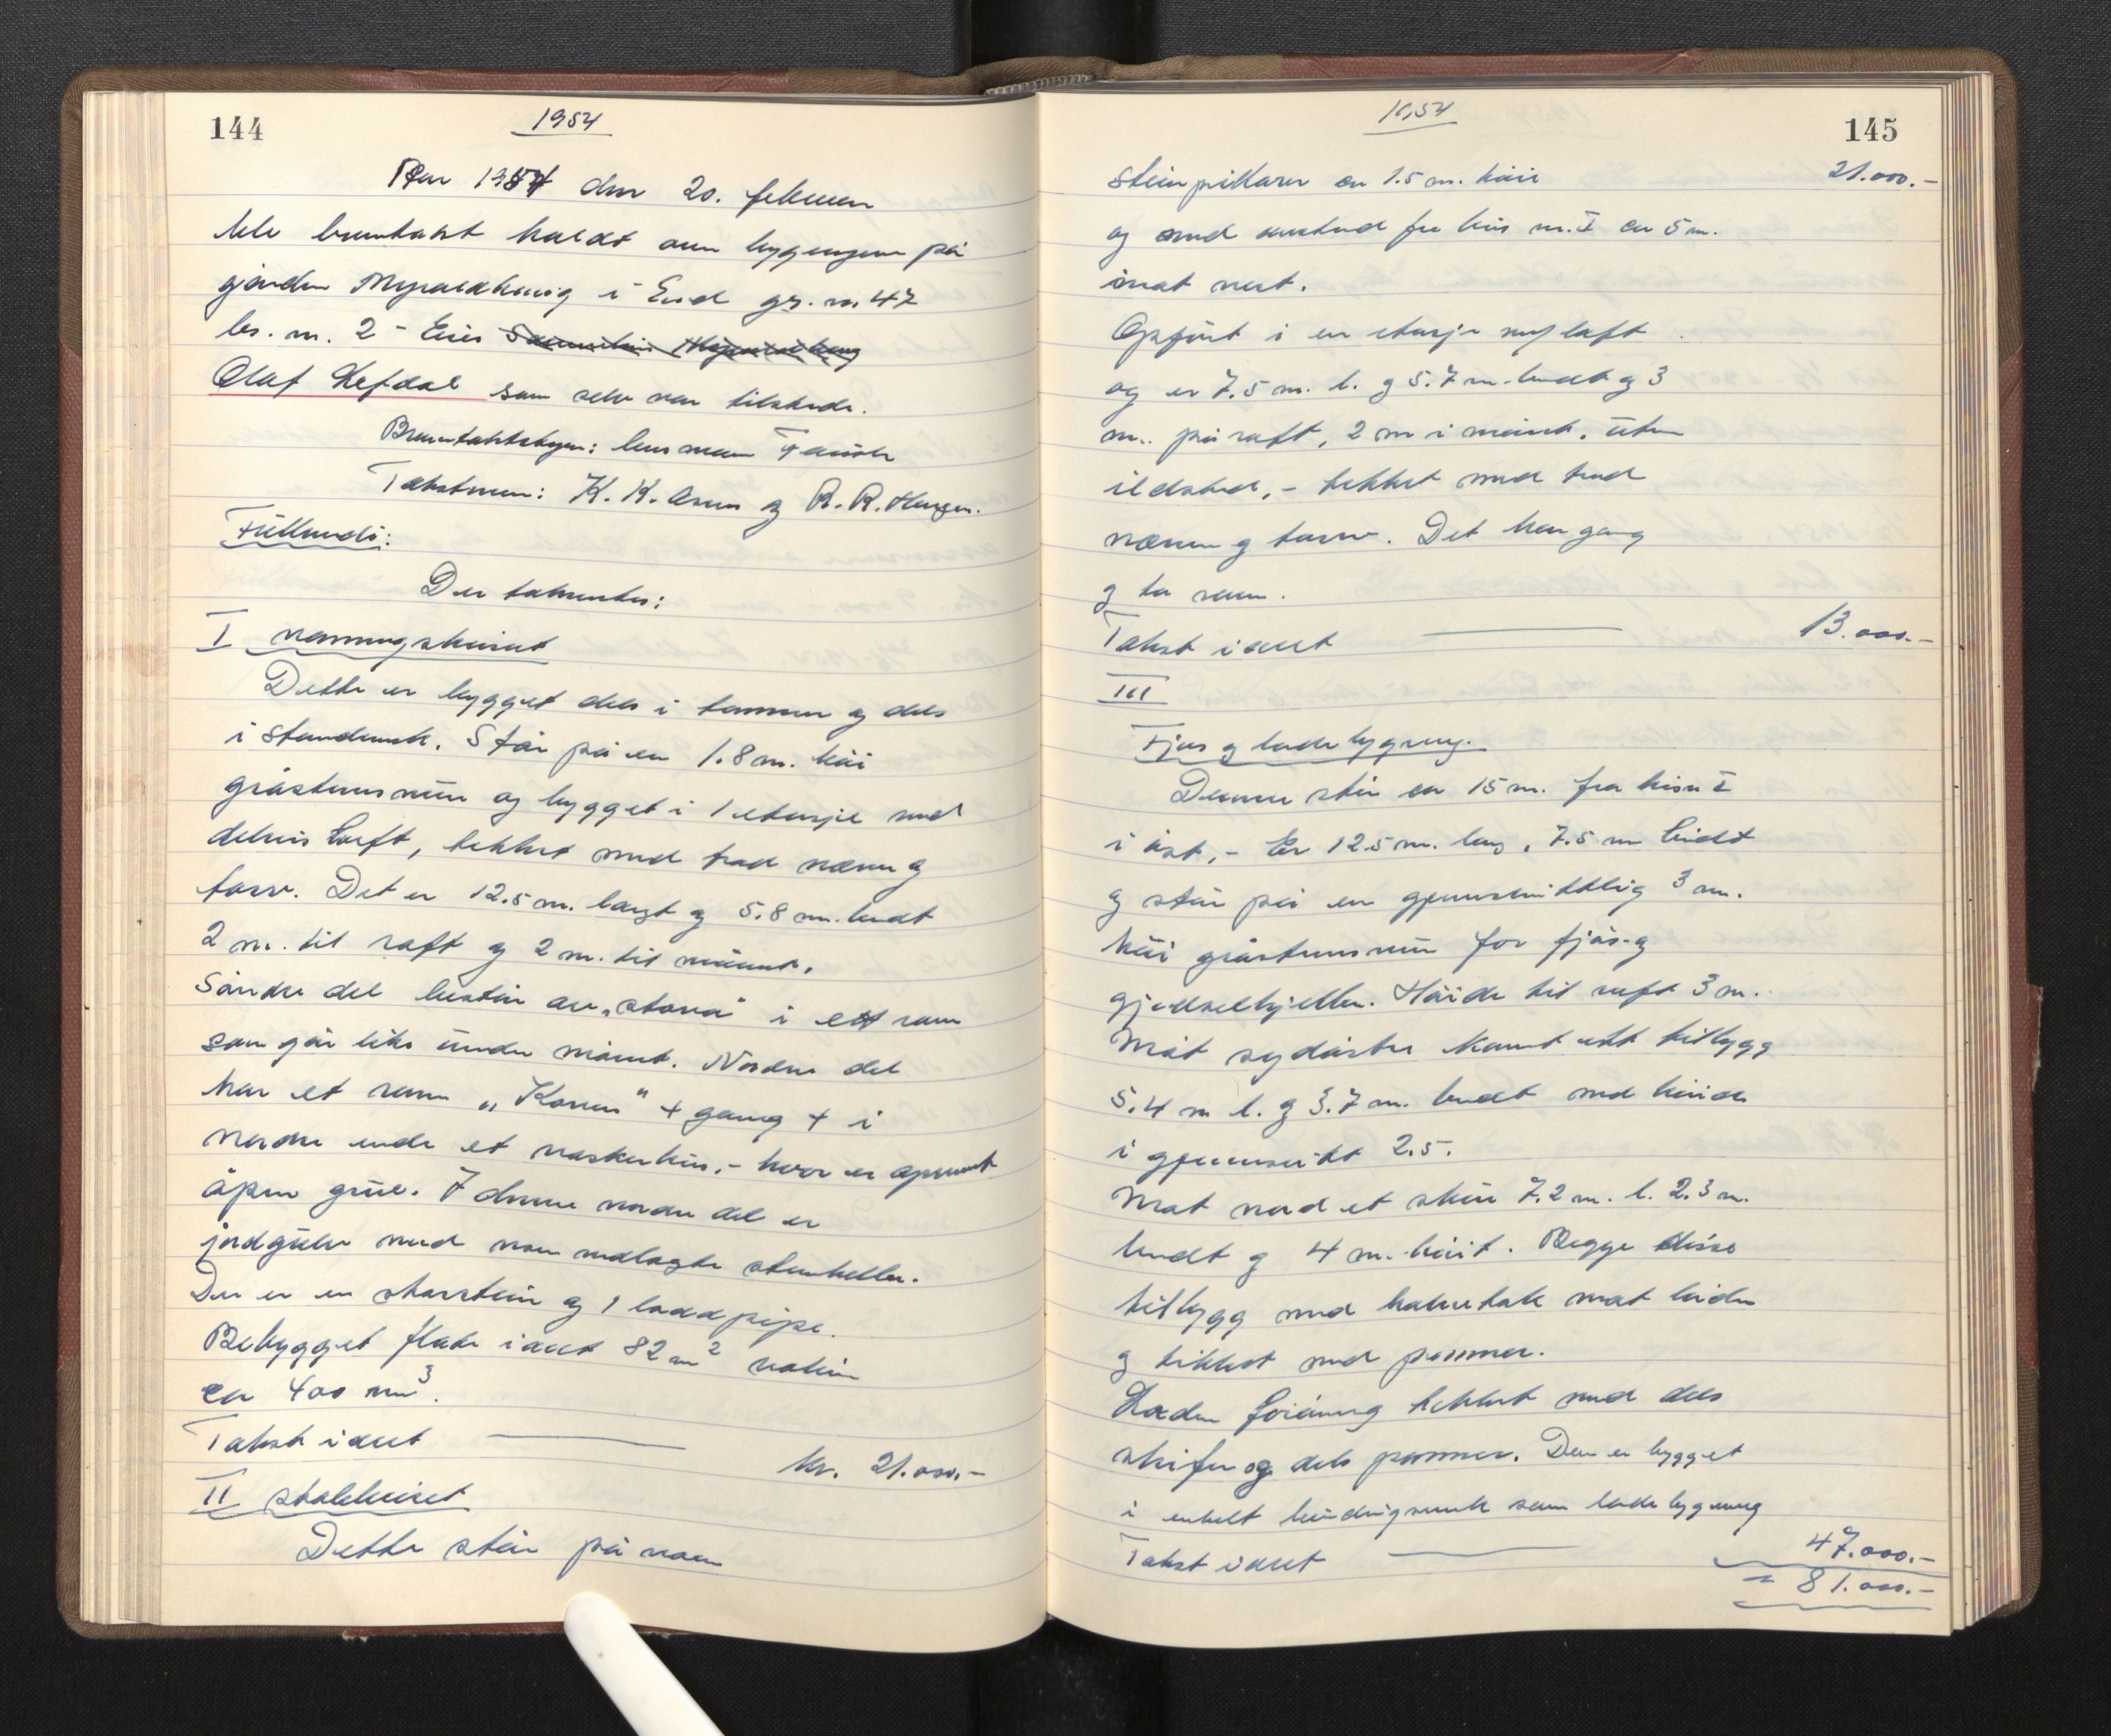 144
1954
År 1954 den 20. februar
ble branntakst holdt over bygningene på
gården Myraldhaug i Eid gr. nr. 47
br. nr. 2 - Eier
Olaf Hefdal som selv var tilstede.
Branntakstbestyrer: lensmann
Takstmenn: K. K. Aarnes og R. R. Haugen.
Der takseredes:
I våningshuset
Dette er bygget dels i tømmer og dels
i stenderverk. Står på en 1.8 m. høi
gråsteinsmur og bygget i 1 etasje med
delvis loft, tekket med trod næver og
torv. Det er 12.5 m. langt og 5.8 m. bredt
2 m. til raft og 2 m. til mønet.
Søndre del består av „stova" i ett rom
som går like under mønet. Nordre del
har et rom „Koven" + gang + i
nordre ende et vaskehus, - hvor er oppmurt
åpen grue. I denne nordre del er
jordgulv med noen nedlagte stenheller.
Der er en skorstein og 1 ladd pipe.
Bebygget flate i alt 82 m² volum
ca 400 m³.
Takst i alt kr. 21.000.-
II stabburet
Dette står på noen
1954
145
steinpillarer ca 1.5 m. høie 21.000.-
og med avstand fra hus nr. I ca 5 m.
imot vest.
Oppført i en etasje m/ loft
og er 7.5 m. l. og 5.7 m. bredt og 3
m. på raft, 2 m i mønet. Uten
ildsted, - tekket med trod
næver og torv. Det har gang
og to rom.
Takst i alt 13.000.-
III
Fjøs og ladebygning.
Denne står ca 15 m. fra hus I
i øst, - Er 12.5 m. lang, 7.5 m bredt
og står på en gjennomsnittlig 3 m.
høi gråsteinsmur for fjøs- og
gjødselkjeller. Høide til raft 3 m.
Mot sydøstre kant ett tilbygg
5.4 m l. og 3.7 m. bredt med høide
i gjennomsnitt 2.5.
Mot nord et skur 7.2 m. l. 2.3 m.
bredt og 4 m. høit. Begge disse
tilbygg med halvtak mot laden
og tekket med panner.
Laden forøvrig tekket med dels
skifer og dels panner. Den er bygget
i enkelt bindingsverk som ladebygning
Takst i alt 47.000.-
= 81.000.-